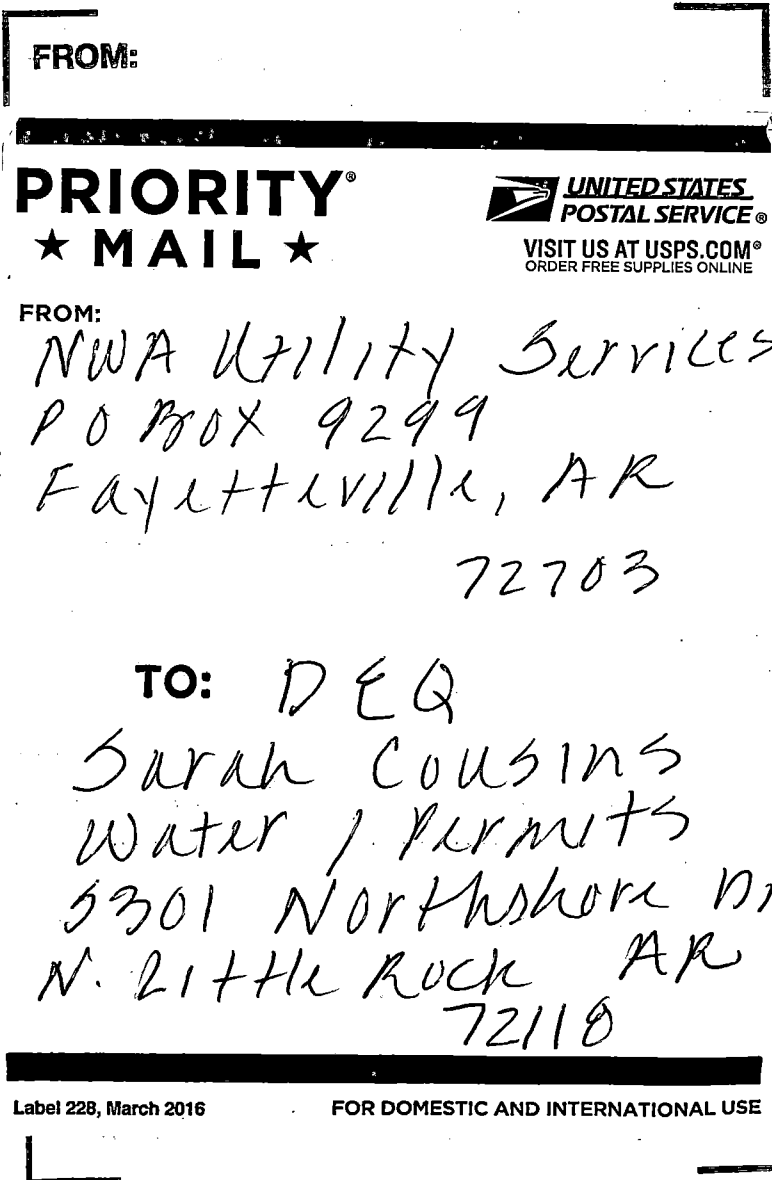 FROM:
PRIORITY®
★ MAIL ★
UNITED STATES
POSTAL SERVICE®
VISIT US AT USPS.COM®
ORDER FREE SUPPLIES ONLINE
FROM:
NWA Utility Services
PO BOX 9299
Fayetteville, AR
72703
TO: DEQ
Sarah Cousins
Water / Permits
5301 Northshore Dr
N. Little Rock AR
72118
Label 228, March 2016
FOR DOMESTIC AND INTERNATIONAL USE